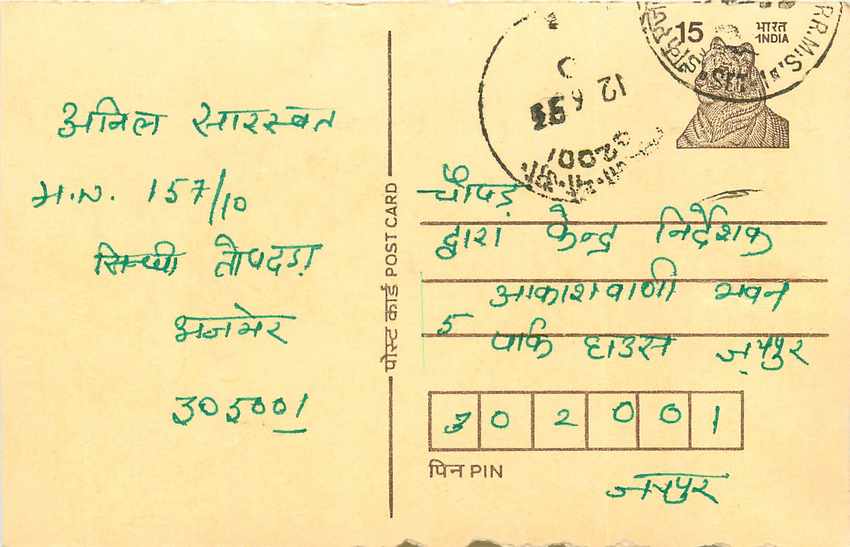 अनिल सारस्वत
म.न. 157/10
सिन्धी तोपदडा
अजमेर
305001
पोस्ट कार्ड POST CARD
15
भारत
INDIA
R.M.S.
12 6
चौपड़
द्वारा केन्द्र निर्देशक
आकाशवाणी भवन
5 पार्क हाउस जयपुर
302001
पिन PIN
जयपुर